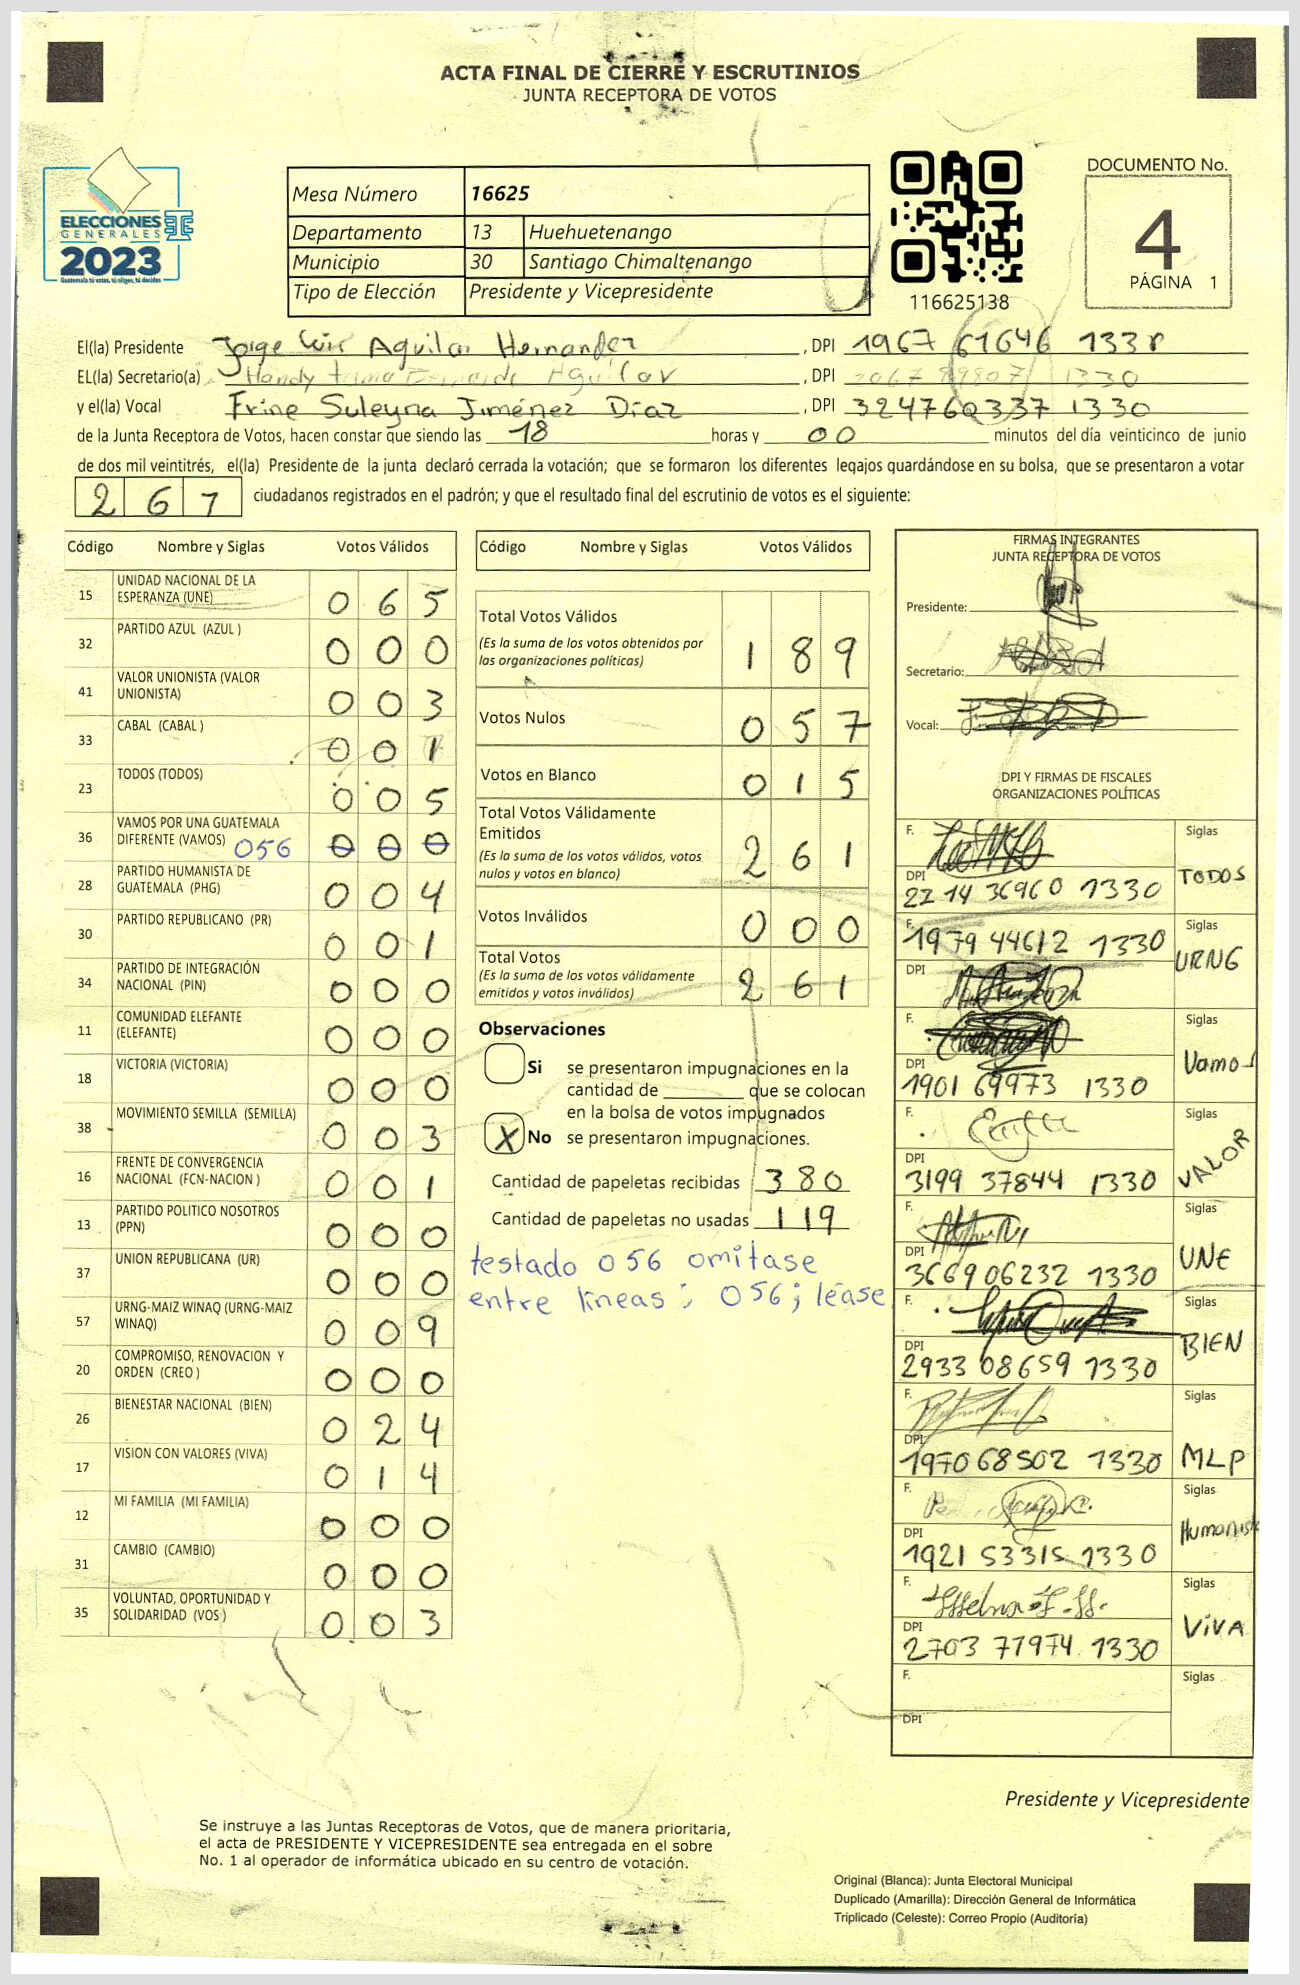 ACTA FINAL DE CIERRE Y ESCRUTINIOS
JUNTA RECEPTORA DE VOTOS
ELECCIONES
GENERALES
2023
Guatemala tú votas, tú eliges, tú decides
Mesa Número 16625
Departamento 13 Huehuetenango
Municipio 30 Santiago Chimaltenango
Tipo de Elección Presidente y Vicepresidente
116625138
DOCUMENTO No.
4
PÁGINA 1
El(la) Presidente Jorge Luis Aguilar Hernandez , DPI 1967 61646 1330
EL(la) Secretario(a) Aguilar , DPI 1330
y el(la) Vocal Irine Suleyna Jiménez Díaz , DPI 324760337 1330
de la Junta Receptora de Votos, hacen constar que siendo las 18 horas y 00 minutos del día veinticinco de junio
de dos mil veintitrés, el(la) Presidente de la junta declaró cerrada la votación; que se formaron los diferentes legajos guardándose en su bolsa, que se presentaron a votar
267 ciudadanos registrados en el padrón; y que el resultado final del escrutinio de votos es el siguiente:
Código Nombre y Siglas Votos Válidos
15 UNIDAD NACIONAL DE LA ESPERANZA (UNE) 065
32 PARTIDO AZUL (AZUL ) 000
41 VALOR UNIONISTA (VALOR UNIONISTA) 003
33 CABAL (CABAL ) 001
23 TODOS (TODOS) 005
36 VAMOS POR UNA GUATEMALA DIFERENTE (VAMOS) 056 000
28 PARTIDO HUMANISTA DE GUATEMALA (PHG) 004
30 PARTIDO REPUBLICANO (PR) 001
34 PARTIDO DE INTEGRACIÓN NACIONAL (PIN) 000
11 COMUNIDAD ELEFANTE (ELEFANTE) 000
18 VICTORIA (VICTORIA) 000
38 MOVIMIENTO SEMILLA (SEMILLA) 003
16 FRENTE DE CONVERGENCIA NACIONAL (FCN-NACION ) 001
13 PARTIDO POLITICO NOSOTROS (PPN) 000
37 UNION REPUBLICANA (UR) 000
57 URNG-MAIZ WINAQ (URNG-MAIZ WINAQ) 009
20 COMPROMISO, RENOVACION Y ORDEN (CREO ) 000
26 BIENESTAR NACIONAL (BIEN) 024
17 VISION CON VALORES (VIVA) 014
12 MI FAMILIA (MI FAMILIA) 000
31 CAMBIO (CAMBIO) 000
35 VOLUNTAD, OPORTUNIDAD Y SOLIDARIDAD (VOS ) 003
Código Nombre y Siglas Votos Válidos
Total Votos Válidos 189
(Es la suma de los votos obtenidos por
las organizaciones políticas)
Votos Nulos 057
Votos en Blanco 015
Total Votos Válidamente
Emitidos 261
(Es la suma de los votos válidos, votos
nulos y votos en blanco)
Votos Inválidos 000
Total Votos 261
(Es la suma de los votos válidamente
emitidos y votos inválidos)
Observaciones
Si se presentaron impugnaciones en la
cantidad de que se colocan
en la bolsa de votos impugnados
X No se presentaron impugnaciones.
Cantidad de papeletas recibidas 380
Cantidad de papeletas no usadas 119
testado 056 omitase
entre lineas; 056; léase
FIRMAS INTEGRANTES
JUNTA RECEPTORA DE VOTOS
Presidente:
Secretario:
Vocal:
DPI Y FIRMAS DE FISCALES
ORGANIZACIONES POLÍTICAS
F. Siglas
DPI 2214 36960 1330 TODOS
F. 1979 44612 1330 Siglas
DPI URNG
F. Siglas
DPI 1901 69973 1330 Vamos
F. Siglas
DPI 3199 37844 1330 VALOR
F. Siglas
DPI 3669 06232 1330 UNE
F. Siglas
DPI 2933 08659 1330 BIEN
F. Siglas
DPI 1970 68502 1330 MLP
F. Siglas
DPI 1921 53315 1330 Humanista
F. Siglas
DPI 2703 77974 1330 ViVA
F. Siglas
DPI
Presidente y Vicepresidente
Se instruye a las Juntas Receptoras de Votos, que de manera prioritaria,
el acta de PRESIDENTE Y VICEPRESIDENTE sea entregada en el sobre
No. 1 al operador de informática ubicado en su centro de votación.
Original (Blanca): Junta Electoral Municipal
Duplicado (Amarilla): Dirección General de Informática
Triplicado (Celeste): Correo Propio (Auditoría)